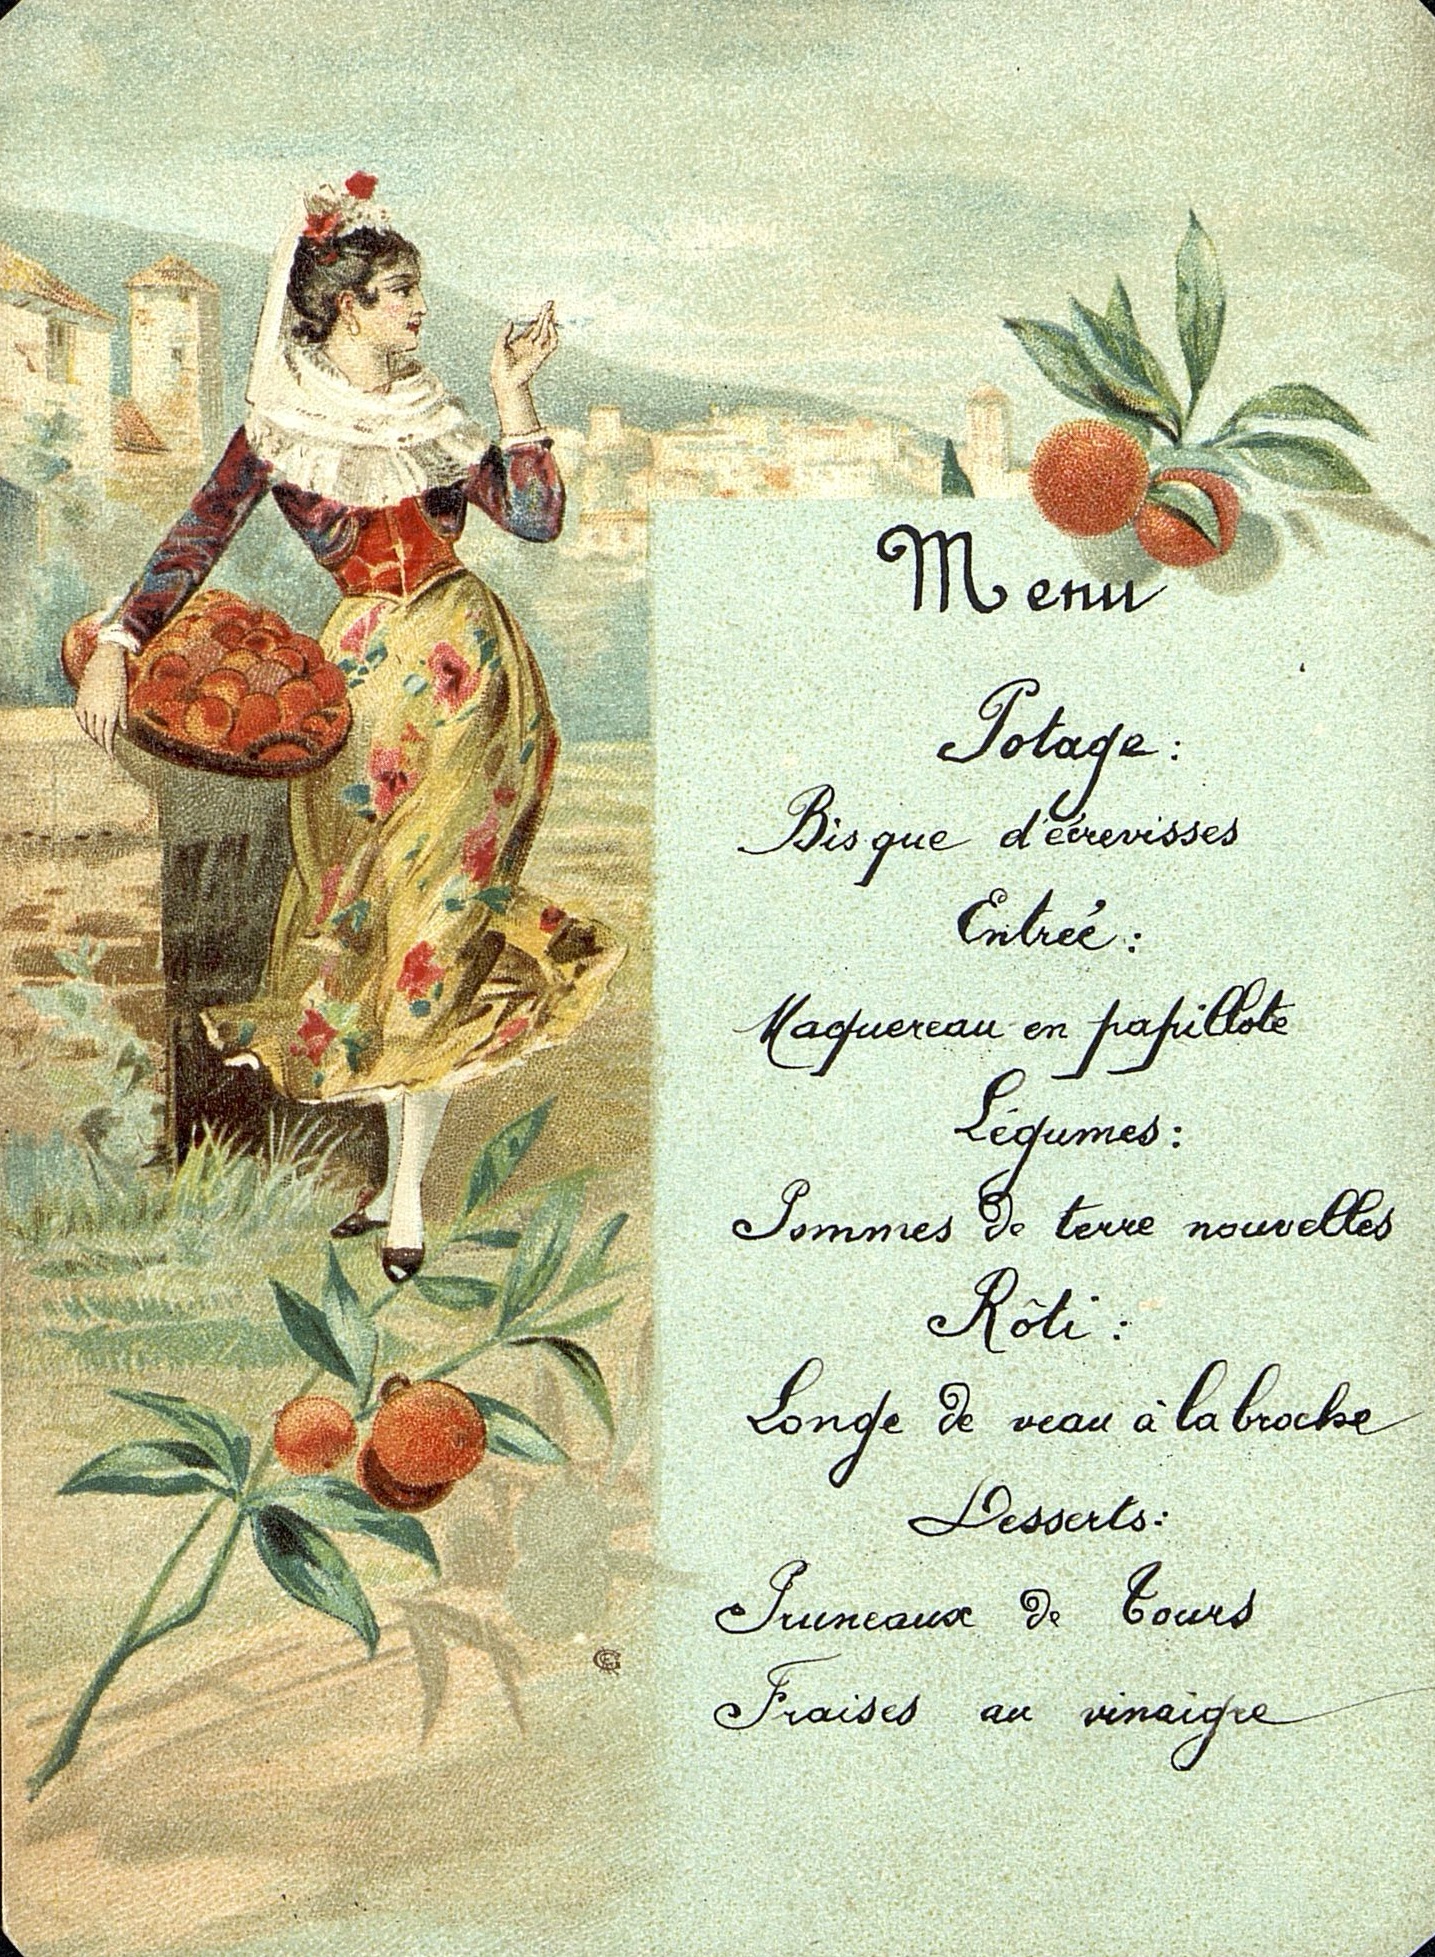 Menu
Potage:
Bisque d'écrevisses
Entrée:
Maquereau en papillote
Légumes:
Pommes de terre nouvelles
Rôti:
Longe de veau à la broche
Desserts:
Pruneaux de Tours
Fraises au vinaigre